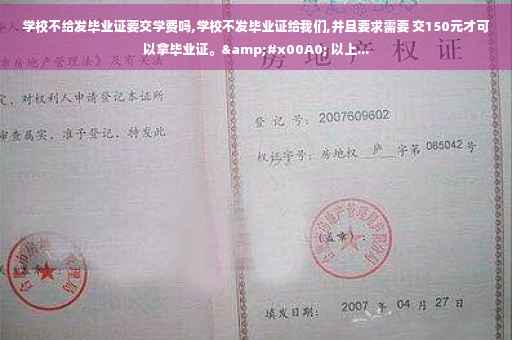 学校不给发毕业证要交学费吗,学校不发毕业证给我们,并且要求需要 交150元才可
以拿毕业证。&amp;#x00A0; 以上...
房地产权证
产管理法》及
定，对权利人申请登记本证所
审查属实，准予登记，特发此
登 记 号：2007609602
权证字号：房地权 庐 字第 065042 号
(盖章)：
填发日期： 2007 年 04 月 27 日